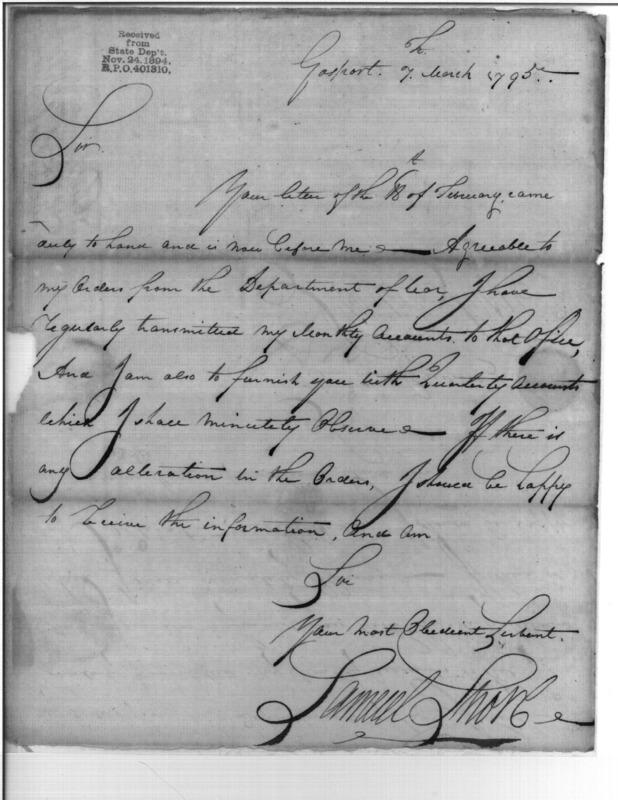 Received
from
State Dep't.
Nov. 24. 1894.
R.P.O. 401310.
Gosport. 7th March 1795
Sir
Your letter of the of February came
duly to hand and is now before me Agreeable to
my Orders from the Department of War, I have
regularly transmitted my Monthly Accounts to that Office,
And I am also to furnish you with Quarterly Accounts
which I shall minutely Observe If there is
any alteration in the Orders, I should be happy
to receive the information, and am
Sir
Your most Obedient Servant.
Samuel